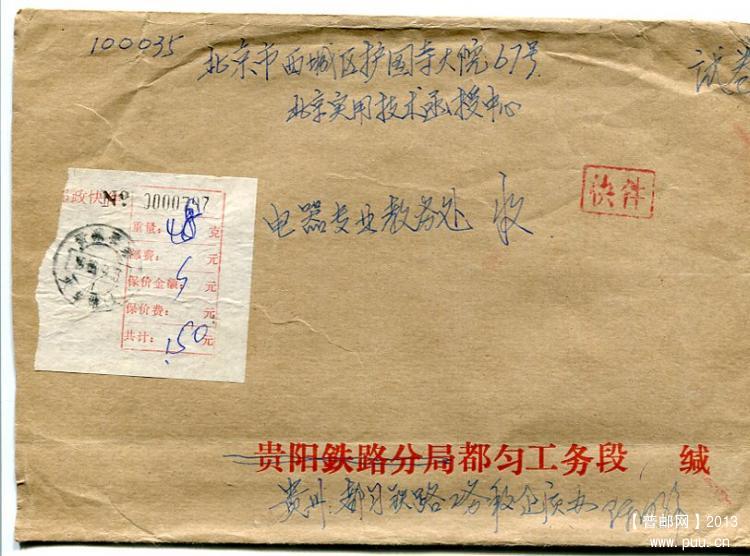 100035
北京市西城区护国寺大院67号
试卷
北京实用技术函授中心
快件
电器专业教务处 收
邮政快件
№ 0000797
重量: 48 克
邮费: 元
保价金额: 元
保价费: 元
共计: .50 元
贵阳鉄路分局都匀工务段 缄
贵州 都匀铁路工务段
【普邮网】2013
www.puu.cn